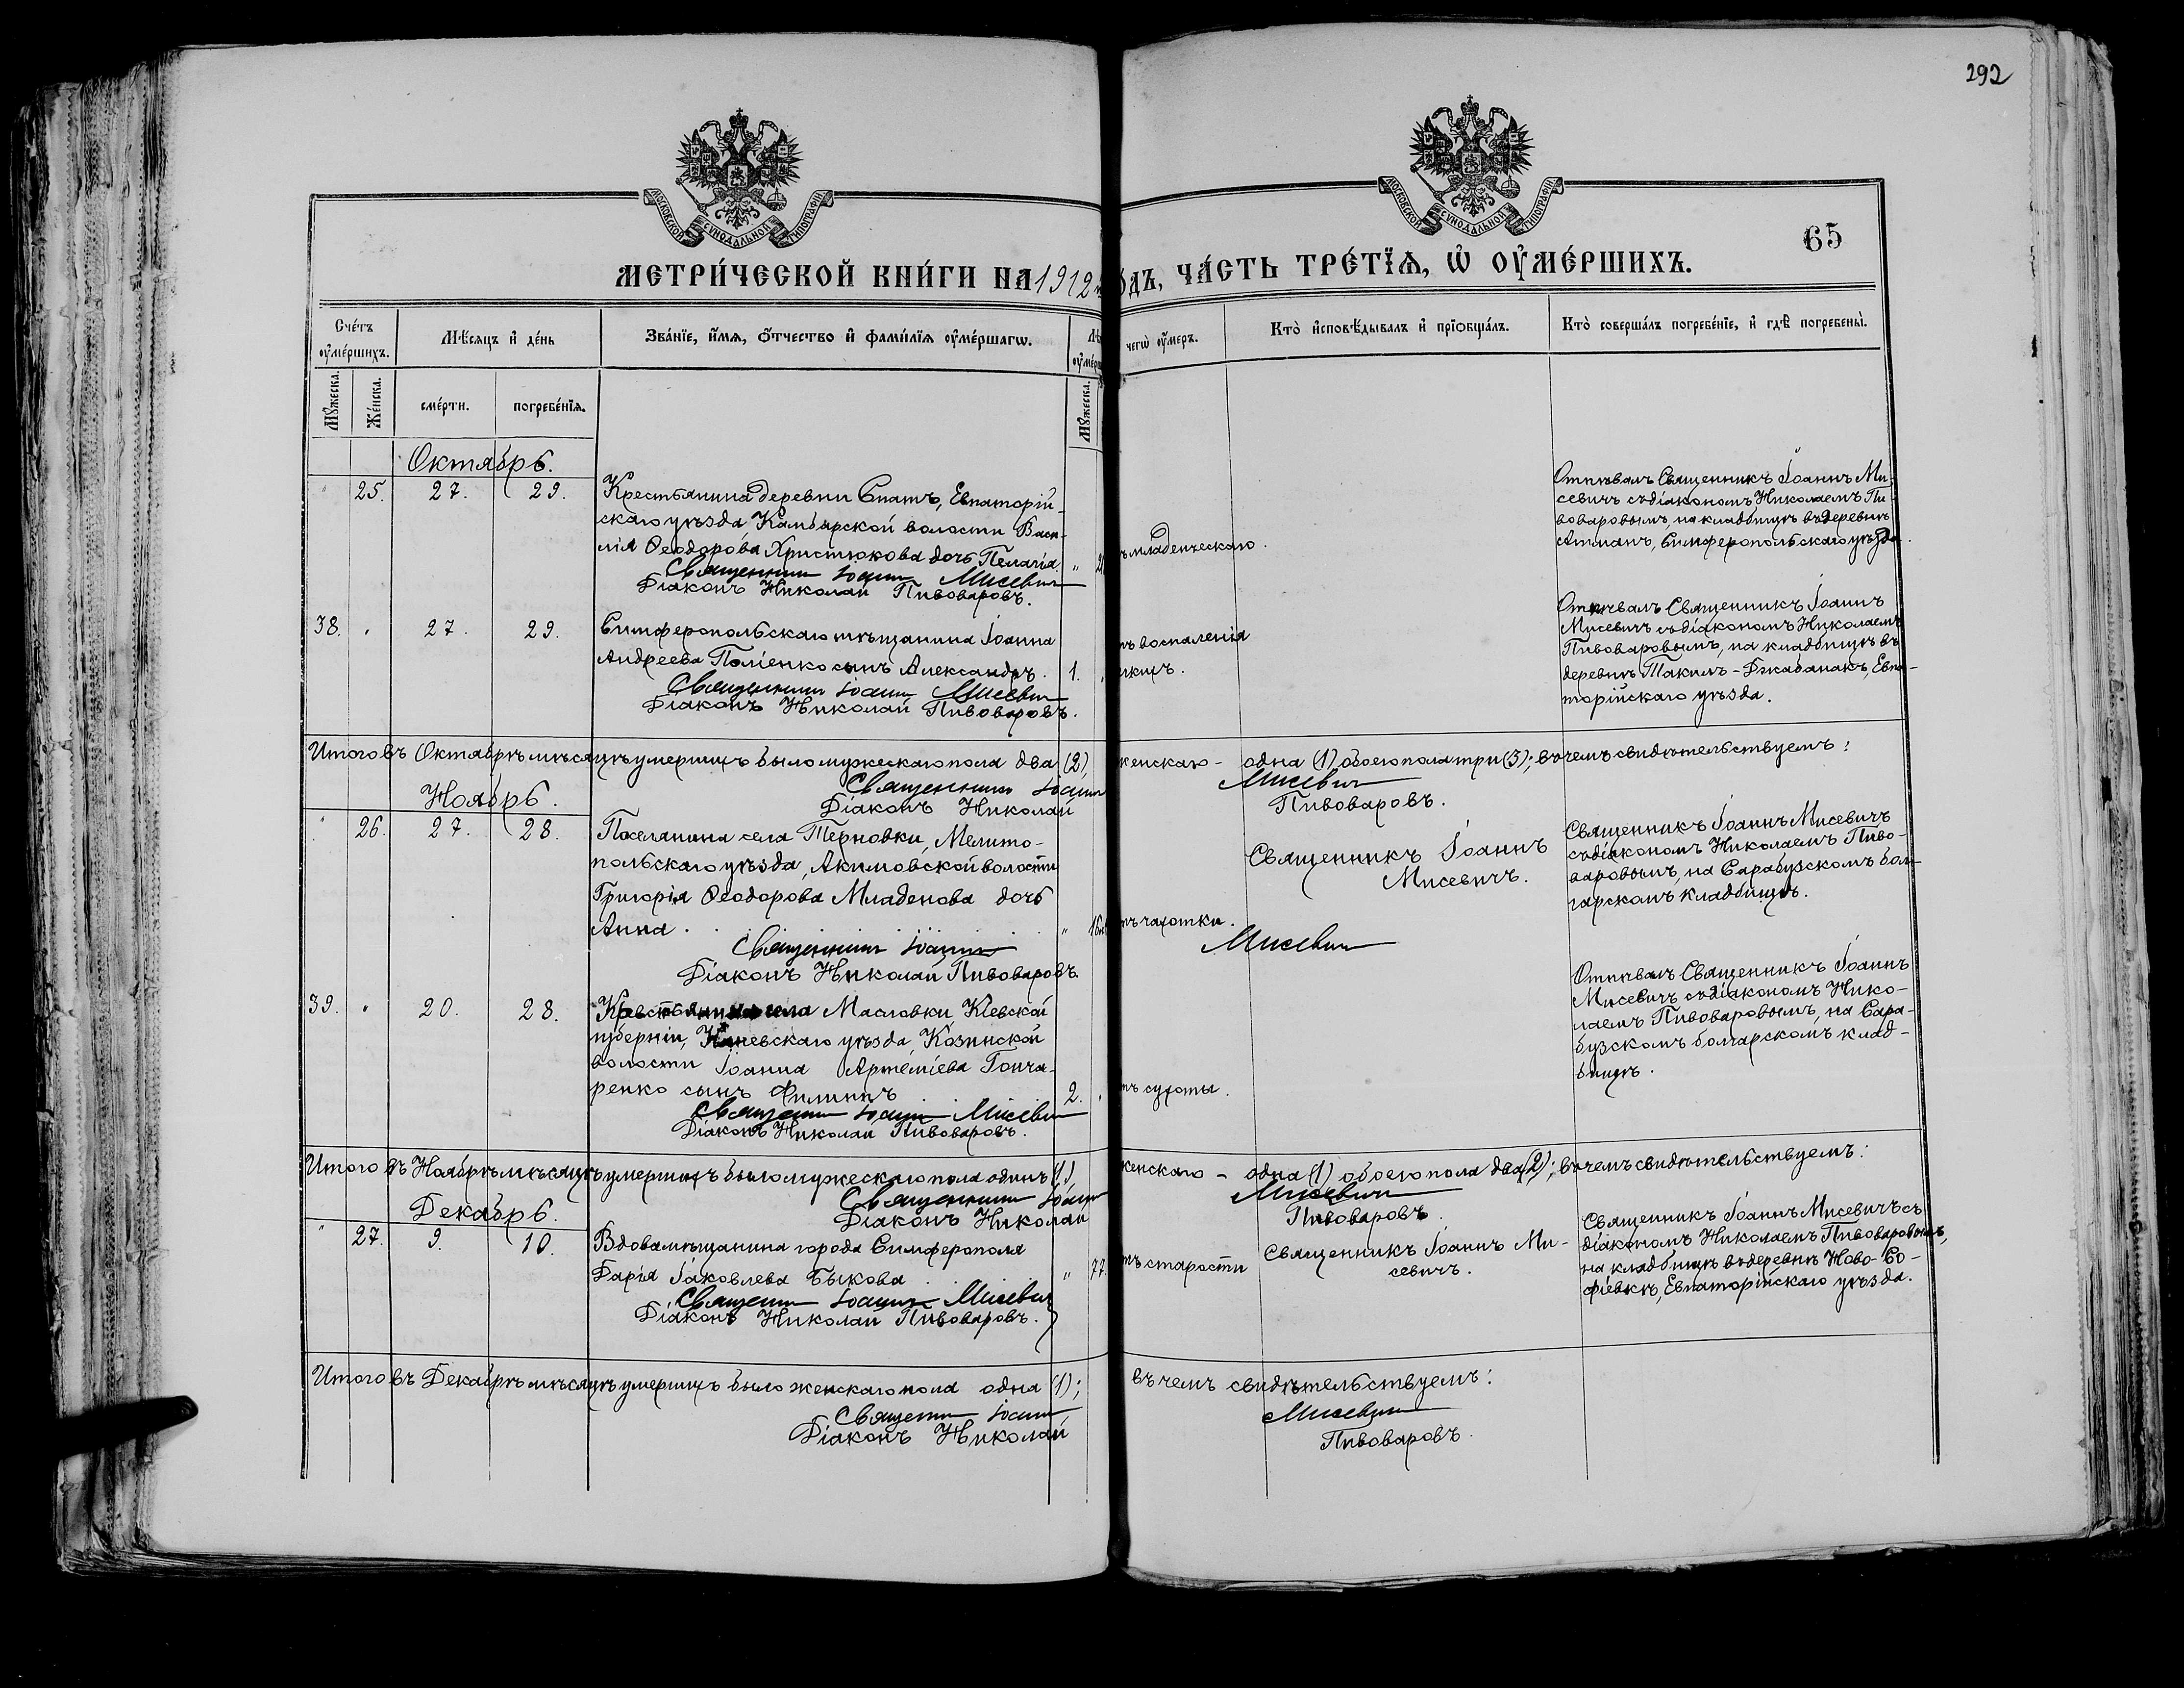 292
МОСКОВСКОЙ СѴНОДАЛЬНОЙ ТИПОГРАФІИ
МОСКОВСКОЙ СѴНОДАЛЬНОЙ ТИПОГРАФІИ
65
МЕТРИ́ЧЕСКОЙ КНИ́ГИ НА 1912 го́дъ, ЧА́СТЬ ТРЕ́ТЇѦ, Ѡ҆ ОУ҆МЕ́РШИХЪ.
Сче́тъ оу҆ме́ршихъ.
Мѣ́сяцъ и҆ де́нь
Зва́нїе, и҆́мѧ, ѻ҆́тчество и҆ фами́лїѧ оу҆ме́ршагѡ.
чегѡ̀ оу҆́меръ.
Кто̀ и҆сповѣ́дывалъ и҆ прїобща́лъ.
Кто̀ соверша́лъ погребе́нїе, и҆ гдѣ̀ погребены̀.
Мꙋ́жеска.
Же́нска.
сме́рти.
погребе́нїѧ.
Мꙋ́жеска.
Октябрь.
" 25. 27. 29.
Крестьянина деревни Спатъ, Евпаторій-
скаго уѣзда Камбарской волости Васи-
лія Ѳеодорова Христюкова дочь Пелагія. "
Священникъ Іоаннъ Мисевичъ
Діаконъ Николай Пивоваровъ.
младенческаго.
Отпѣвалъ Священникъ Іоаннъ Ми-
севичъ съ діакономъ Николаемъ Пи-
воваровымъ, на кладбищѣ въ деревнѣ
Атманъ, Симферопольскаго уѣзда.
38. " 27. 29.
Симферопольскаго мѣщанина Іоанна
Андреева Поліенко сынъ Александръ. 1.
Священникъ Іоаннъ Мисевичъ
Діаконъ Николай Пивоваровъ.
воспаленія
Отпѣвалъ Священникъ Іоаннъ
Мисевичъ съ діакономъ Николаемъ
Пивоваровымъ, на кладбищѣ въ
деревнѣ Такилъ-Джабанакъ, Евпа-
торійскаго уѣзда.
Итого въ Октябрѣ мѣсяцѣ умершихъ было мужескаго пола два (2), женскаго - одна (1), обоего пола три (3); въ чемъ свидѣтельствуемъ:
Священникъ Іоаннъ Мисевичъ
Діаконъ Николай Пивоваровъ.
Ноябрь.
" 26. 27. 28.
Поселянина села Терновки, Мелито-
польскаго уѣзда, Акимовской волости
Григорія Ѳеодорова Младенова дочь
Анна. "
чахотки.
Священникъ Іоаннъ Мисевичъ
Діаконъ Николай Пивоваровъ.
Священникъ Іоаннъ
Мисевичъ.
Священникъ Іоаннъ Мисевичъ
съ діакономъ Николаемъ Пиво-
варовымъ, на Сарабузскомъ бол-
гарскомъ кладбищѣ.
39. " 20. 28.
Крестьянина села Масловки, Кіевской
губерніи, Каневскаго уѣзда, Козинской
волости Іоанна Артеміева Гонча-
ренко сынъ Филиппъ 2.
сухоты.
Священникъ Іоаннъ Мисевичъ
Діаконъ Николай Пивоваровъ.
Отпѣвалъ Священникъ Іоаннъ
Мисевичъ съ діакономъ Нико-
лаемъ Пивоваровымъ, на Сара-
бузскомъ болгарскомъ клад-
бищѣ.
Итого въ Ноябрѣ мѣсяцѣ умершихъ было мужескаго пола одинъ (1), женскаго - одна (1) обоего пола два (2); въ чемъ свидѣтельствуемъ:
Священникъ Іоаннъ Мисевичъ
Діаконъ Николай Пивоваровъ.
Декабрь.
" 27. 9. 10.
Вдова мѣщанина города Симферополя
Дарія Іаковлева Быкова. " 77.
старости
Священникъ Іоаннъ Мисевичъ
Діаконъ Николай Пивоваровъ.
Священникъ Іоаннъ Ми-
севичъ.
Священникъ Іоаннъ Мисевичъ съ
діакономъ Николаемъ Пивоваровымъ,
на кладбищѣ въ деревнѣ Ново-Со-
фіевкѣ, Евпаторійскаго уѣзда.
Итого въ Декабрѣ мѣсяцѣ умершихъ было женскаго пола одна (1); въ чемъ свидѣтельствуемъ:
Священникъ Іоаннъ Мисевичъ
Діаконъ Николай Пивоваровъ.